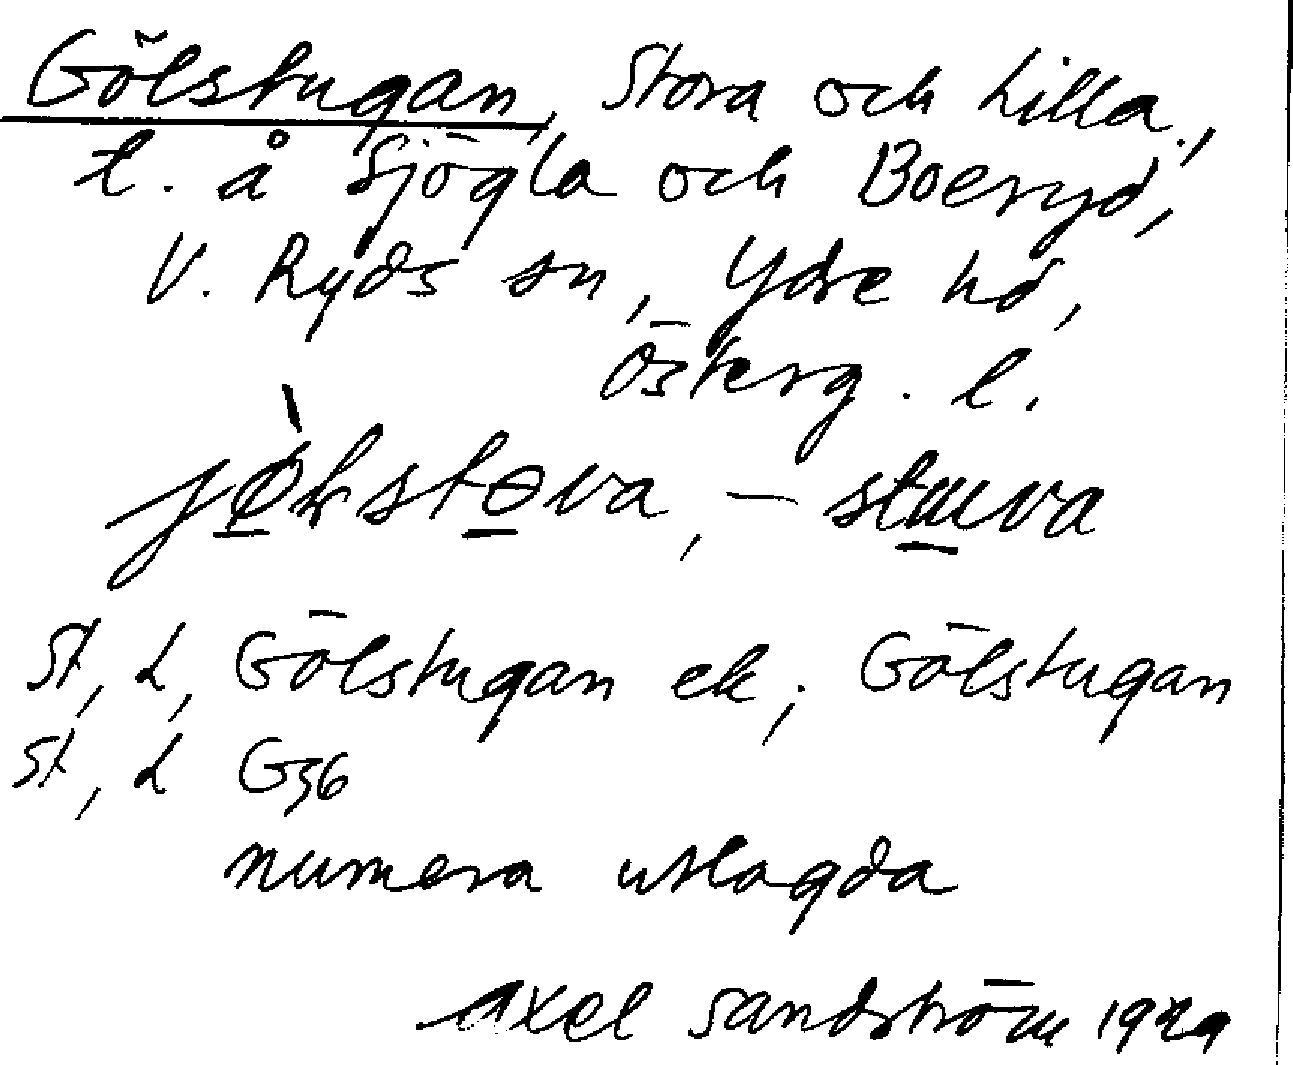 Gölstugan, Stora och Lilla,
l. å Sjögla och Boeryd,
V. Ryds sn, Ydre hd,
Österg. l.
St, L, Gölstugan ek; Gölstugan
St, L G36
numera utlagda
Axel Sandström 1929